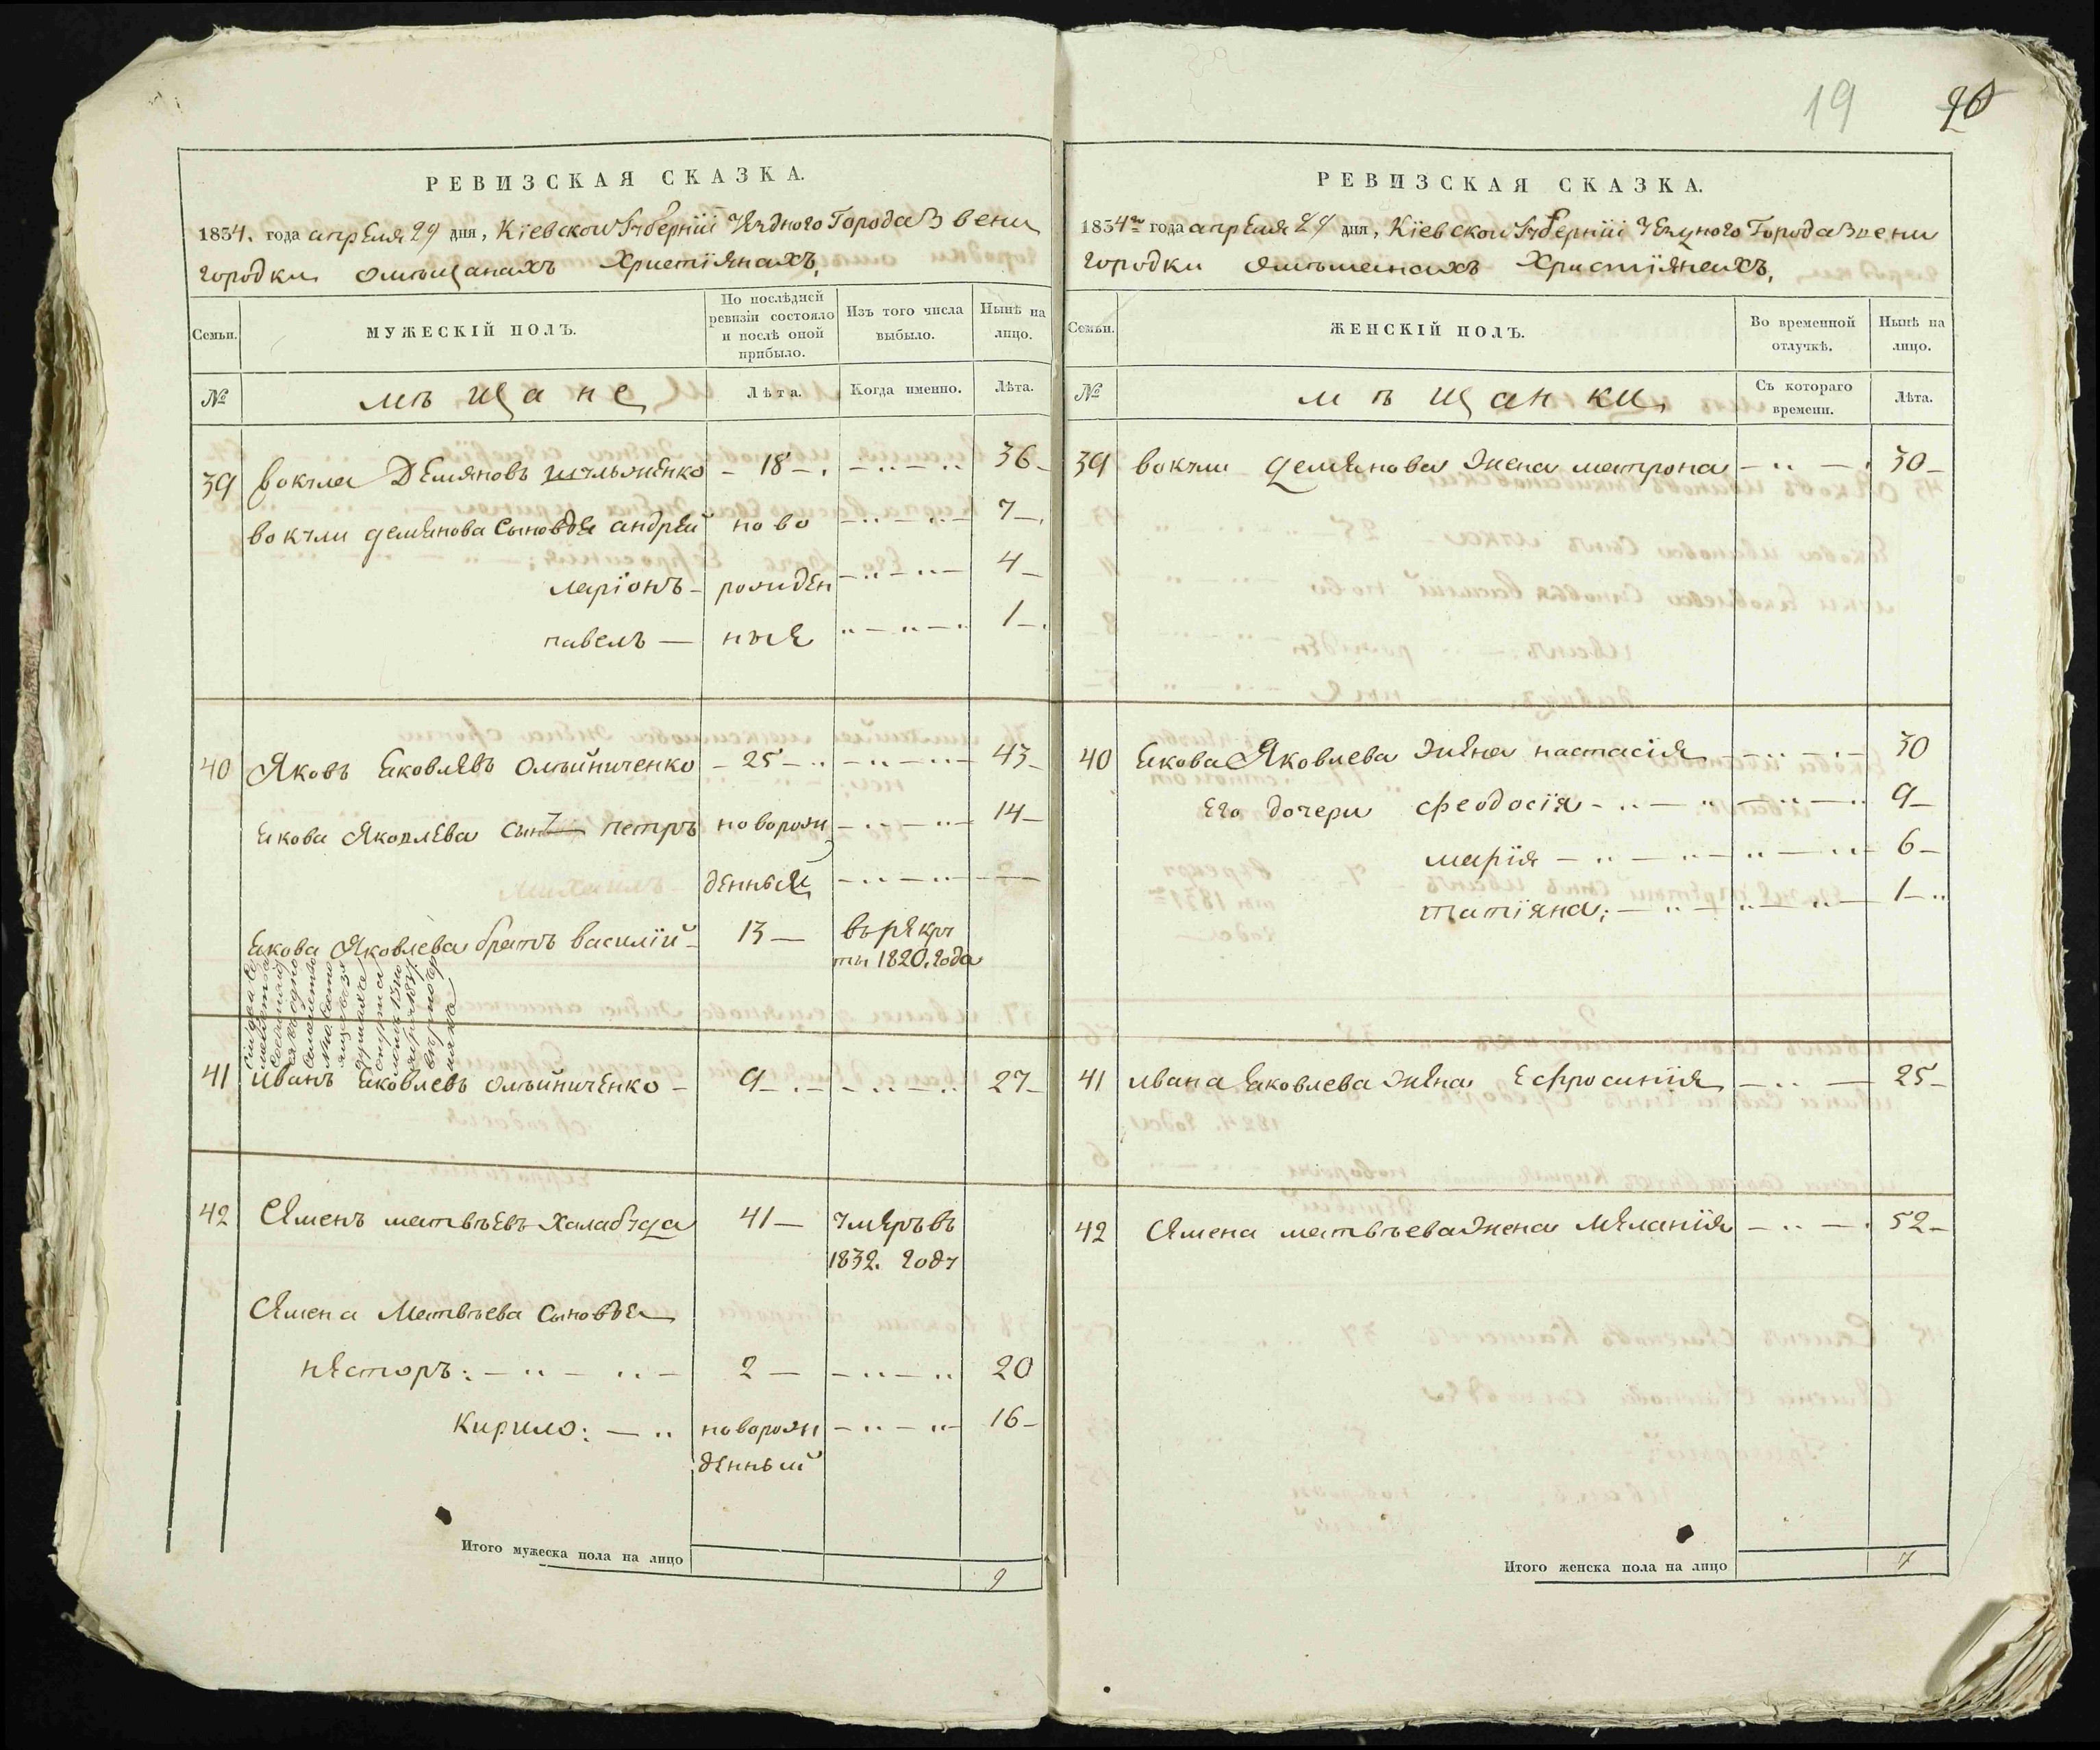 19
20
РЕВИЗСКАЯ СКАЗКА.
1834. года апреля 29 дня, Кіевскои Губерніи Уездного Города Звени
городки омѣщанахъ Христіянахъ,
Семьи.
МУЖЕСКІЙ ПОЛЪ.
По послѣдней ревизіи состояло и послѣ оной прибыло.
Изъ того числа выбыло.
Нынѣ на лицо.
№
мѣщане
Лѣта.
Когда именно.
Лѣта.
39 вокула Демяновъ - 18 - 36
вокули демянова сыновья андрей ново 7
ларіонъ - рожден 4
павелъ - ные 1
40 Яковъ Яковлевъ олѣйниченко - 25 - 43
Якова Яковлева сынъ петръ новорож 14
денный
Якова Яковлева братъ василій - 13 - врекру
ты 1820. года
41 иванъ Яковлевъ олѣйниченко - 9 - 27
42 Семенъ матвѣевъ 41 - умеръвъ
1832. году
Семена Матвѣева сыновья
несторъ: 2 - 20
кирило: новорож 16
денный
Итого мужеска пола на лицо
9
РЕВИЗСКАЯ СКАЗКА.
1834го года апреля 29 дня, Кіевскои Губерніи Уезднаго Города Звени
городки омѣщанахъ Христіянахъ,
Семьи.
ЖЕНСКІЙ ПОЛЪ.
Во временной отлучкѣ.
Нынѣ на лицо.
№
мѣщанки
Съ котораго времени.
Лѣта.
39 вокули демянова жена матрона 30
40 Якова Яковлева жена настасія 30
Его дочери феодосія 9
марія 6
татіяна: 1
41 ивана Яковлева жена Ефросинія 25
42 Семена матвѣева жена Меланія 52
Итого женска пола на лицо
7